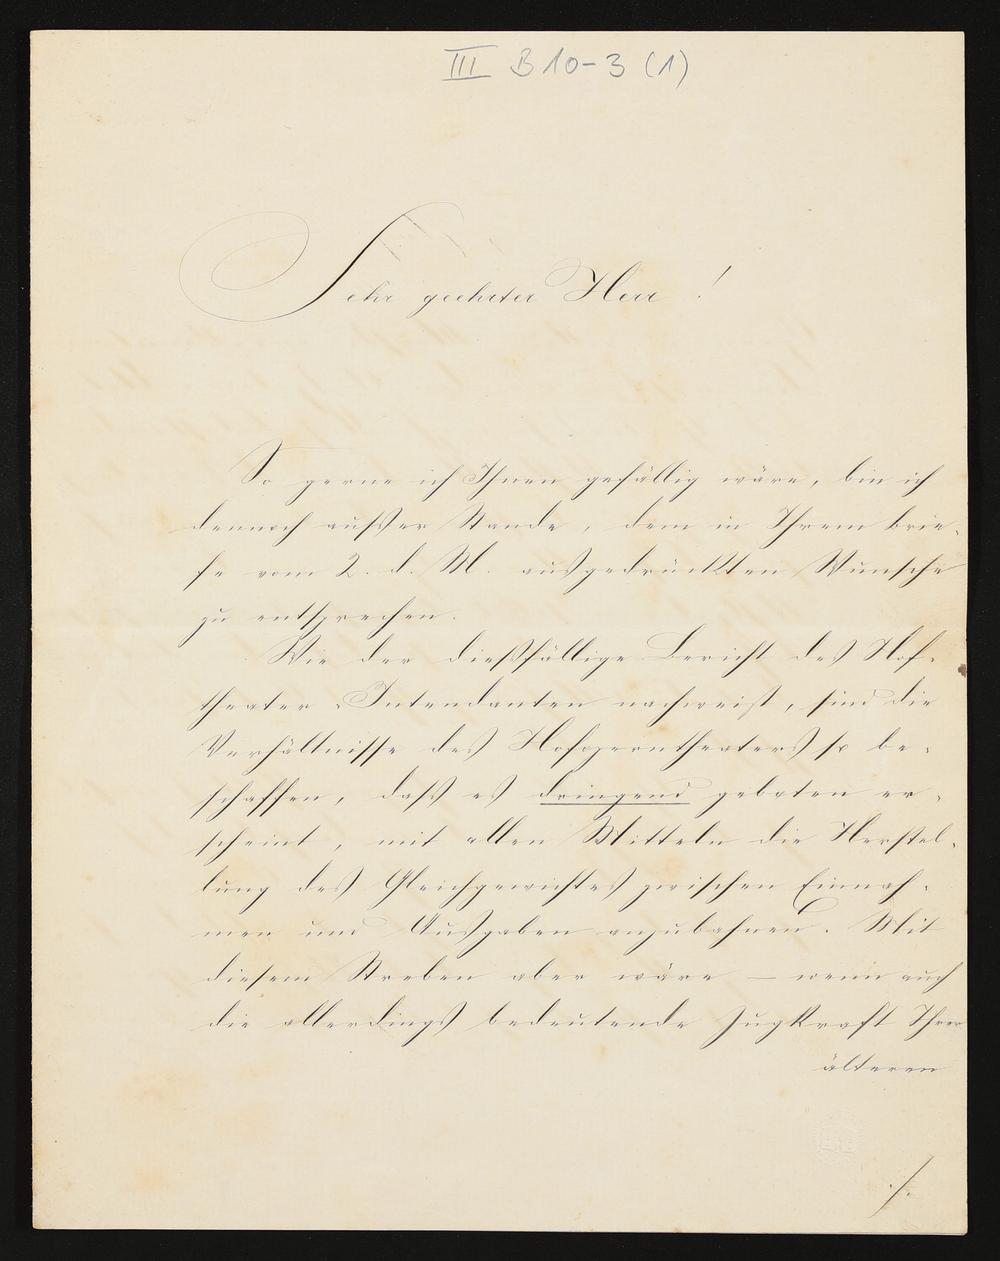 III B 10-3 (1)
Sehr geehrter Herr!
So gerne ich Ihnen gefällig wäre, bin ich
dennoch außer Stande, dem in Ihrem Brie-
fe vom 2. d. M. ausgedrückten Wunsche
zu entsprechen.
Wie der dießfällige Bericht des Hof-
theater-Intendanten nachweist, sind die
Verhältnisse des Hofoperntheaters so be-
schaffen, daß es dringend geboten er-
scheint, mit allen Mitteln die Herstel-
lung des Gleichgewichtes zwischen Einnah-
men und Ausgaben anzubahnen. Mit
diesem Streben aber wäre – wenn auch
die allerdings bedeutende Zugkraft Ihrer
älteren
./.